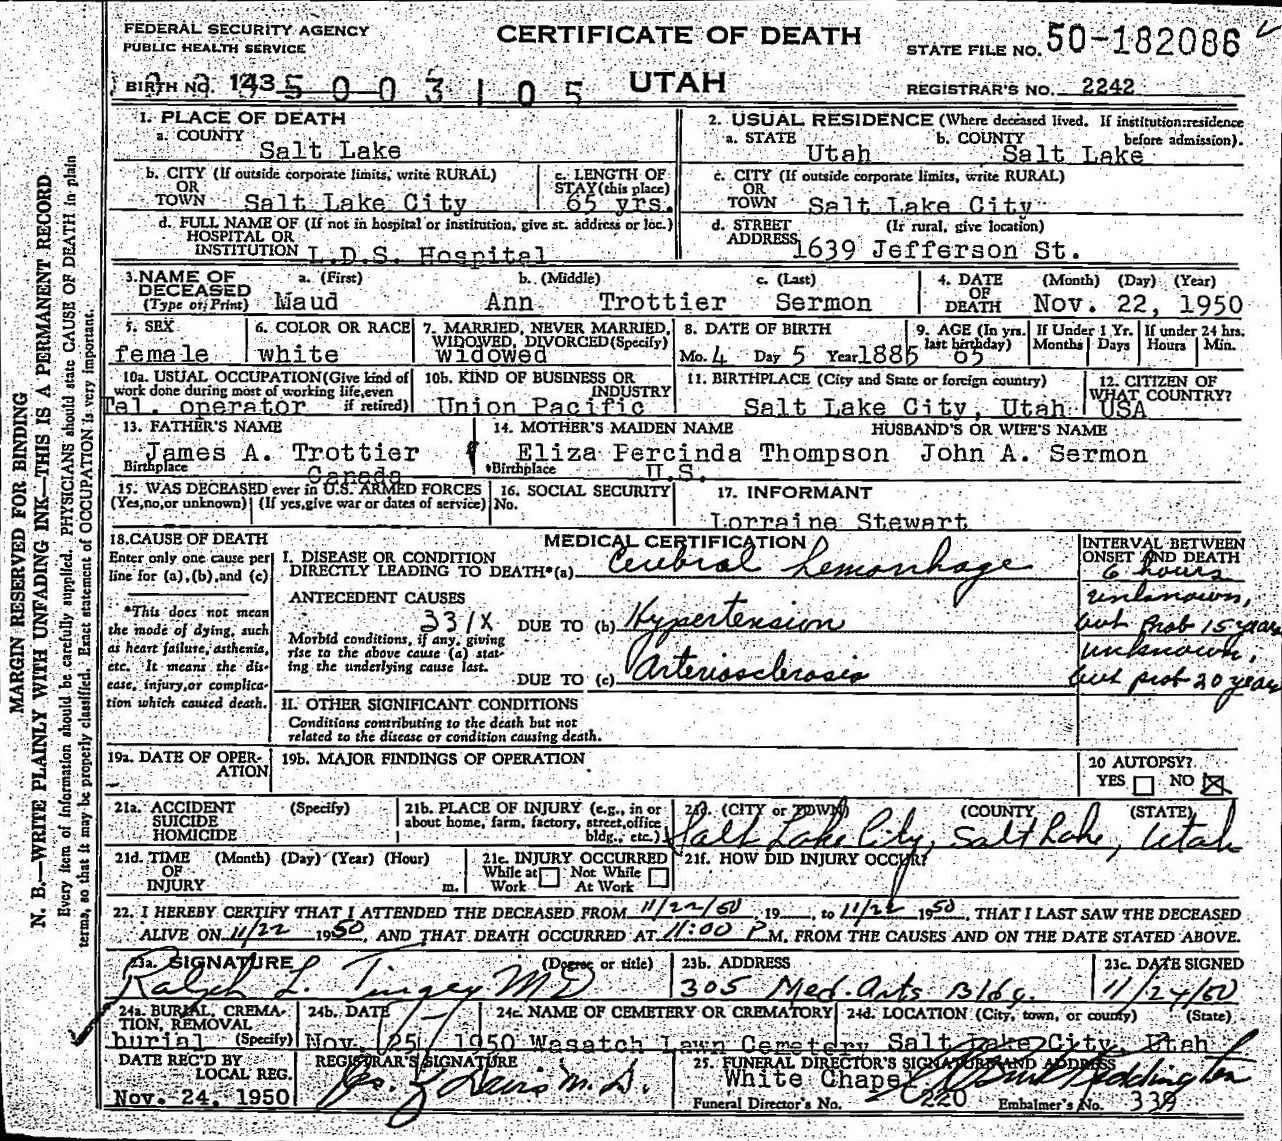 FEDERAL SECURITY AGENCY
PUBLIC HEALTH SERVICE
CERTIFICATE OF DEATH
STATE FILE NO. 50-182086
BIRTH NO. 143 5 0 0 3 1 0 5
UTAH
REGISTRAR'S NO. 2242
MARGIN RESERVED FOR BINDING
N. B.—WRITE PLAINLY WITH UNFADING INK—THIS IS A PERMANENT RECORD
Every item of information should be carefully supplied. PHYSICIANS should state CAUSE OF DEATH in plain
terms, so that it may be properly classified. Exact statement of OCCUPATION is very important.
1. PLACE OF DEATH
a. COUNTY
Salt Lake
2. USUAL RESIDENCE (Where deceased lived. If institution:residence
before admission).
a. STATE b. COUNTY
Utah Salt Lake
b. CITY (If outside corporate limits, write RURAL)
OR
TOWN Salt Lake City
c. LENGTH OF
STAY(this place)
65 yrs.
c. CITY (If outside corporate limits, write RURAL)
OR
TOWN Salt Lake City
d. FULL NAME OF (If not in hospital or institution, give st. address or loc.)
HOSPITAL OR
INSTITUTION L.D.S. Hospital
d. STREET (If rural, give location)
ADDRESS 1639 Jefferson St.
3. NAME OF
DECEASED
(Type or Print)
a. (First) b. (Middle) c. (Last)
Maud Ann Trottier Sermon
4. DATE
OF
DEATH
(Month) (Day) (Year)
Nov. 22, 1950
5. SEX
female
6. COLOR OR RACE
white
7. MARRIED, NEVER MARRIED,
WIDOWED, DIVORCED(Specify)
widowed
8. DATE OF BIRTH
Mo. 4 Day 5 Year 1885
9. AGE (In yrs.
last birthday)
65
If Under 1 Yr.
Months Days
If under 24 hrs.
Hours Min.
10a. USUAL OCCUPATION(Give kind of
work done during most of working life,even
if retired)
Tel. operator
10b. KIND OF BUSINESS OR
INDUSTRY
Union Pacific
11. BIRTHPLACE (City and State or foreign country)
Salt Lake City, Utah
12. CITIZEN OF
WHAT COUNTRY?
USA
13. FATHER'S NAME
James A. Trottier
Birthplace Canada
14. MOTHER'S MAIDEN NAME
Eliza Percinda Thompson
Birthplace U.S.
HUSBAND'S OR WIFE'S NAME
John A. Sermon
15. WAS DECEASED ever in U.S. ARMED FORCES
(Yes,no,or unknown) (If yes,give war or dates of service)
16. SOCIAL SECURITY
No.
17. INFORMANT
Lorraine Stewart
18.CAUSE OF DEATH
Enter only one cause per
line for (a),(b),and (c)
*This does not mean
the mode of dying, such
as heart failure, asthenia,
etc. It means the dis-
ease, injury,or complica-
tion which caused death.
MEDICAL CERTIFICATION
I. DISEASE OR CONDITION
DIRECTLY LEADING TO DEATH*(a) Cerebral hemorrhage
ANTECEDENT CAUSES
331X DUE TO (b) Hypertension
Morbid conditions, if any, giving
rise to the above cause (a) stat-
ing the underlying cause last.
DUE TO (c) Arteriosclerosis
INTERVAL BETWEEN
ONSET AND DEATH
6 hours
unknown,
but prob 15 years
unknown,
but prob 20 years
II. OTHER SIGNIFICANT CONDITIONS
Conditions contributing to the death but not
related to the disease or condition causing death.
19a. DATE OF OPER-
ATION
19b. MAJOR FINDINGS OF OPERATION
20 AUTOPSY?
YES NO X
21a. ACCIDENT (Specify)
SUICIDE
HOMICIDE
21b. PLACE OF INJURY (e.g., in or
about home, farm, factory, street,office
bldg., etc.)
21c. (CITY or TOWN) (COUNTY) (STATE)
Salt Lake City, Salt Lake, Utah
21d. TIME (Month) (Day) (Year) (Hour)
OF
INJURY m.
21e. INJURY OCCURRED
While at Work Not While At Work
21f. HOW DID INJURY OCCUR?
22. I HEREBY CERTIFY THAT I ATTENDED THE DECEASED FROM 11/22/50, 19, to 11/22 1950, THAT I LAST SAW THE DECEASED
ALIVE ON 11/22 1950, AND THAT DEATH OCCURRED AT 11:00 P M, FROM THE CAUSES AND ON THE DATE STATED ABOVE.
23a. SIGNATURE (Degree or title)
Ralph L. Tingey MD
23b. ADDRESS
305 Med. Arts Bldg.
23c. DATE SIGNED
11/24/50
24a. BURIAL, CREMA-
TION, REMOVAL
(Specify)
burial
24b. DATE
Nov. 25, 1950
24c. NAME OF CEMETERY OR CREMATORY
Wasatch Lawn Cemetery
24d. LOCATION (City, town, or county) (State)
Salt Lake City, Utah
DATE REC'D BY
LOCAL REG.
Nov. 24, 1950
REGISTRAR'S SIGNATURE
M.D.
25. FUNERAL DIRECTOR'S SIGNATURE AND ADDRESS
White Chapel
Funeral Director's No. 220 Embalmer's No. 339